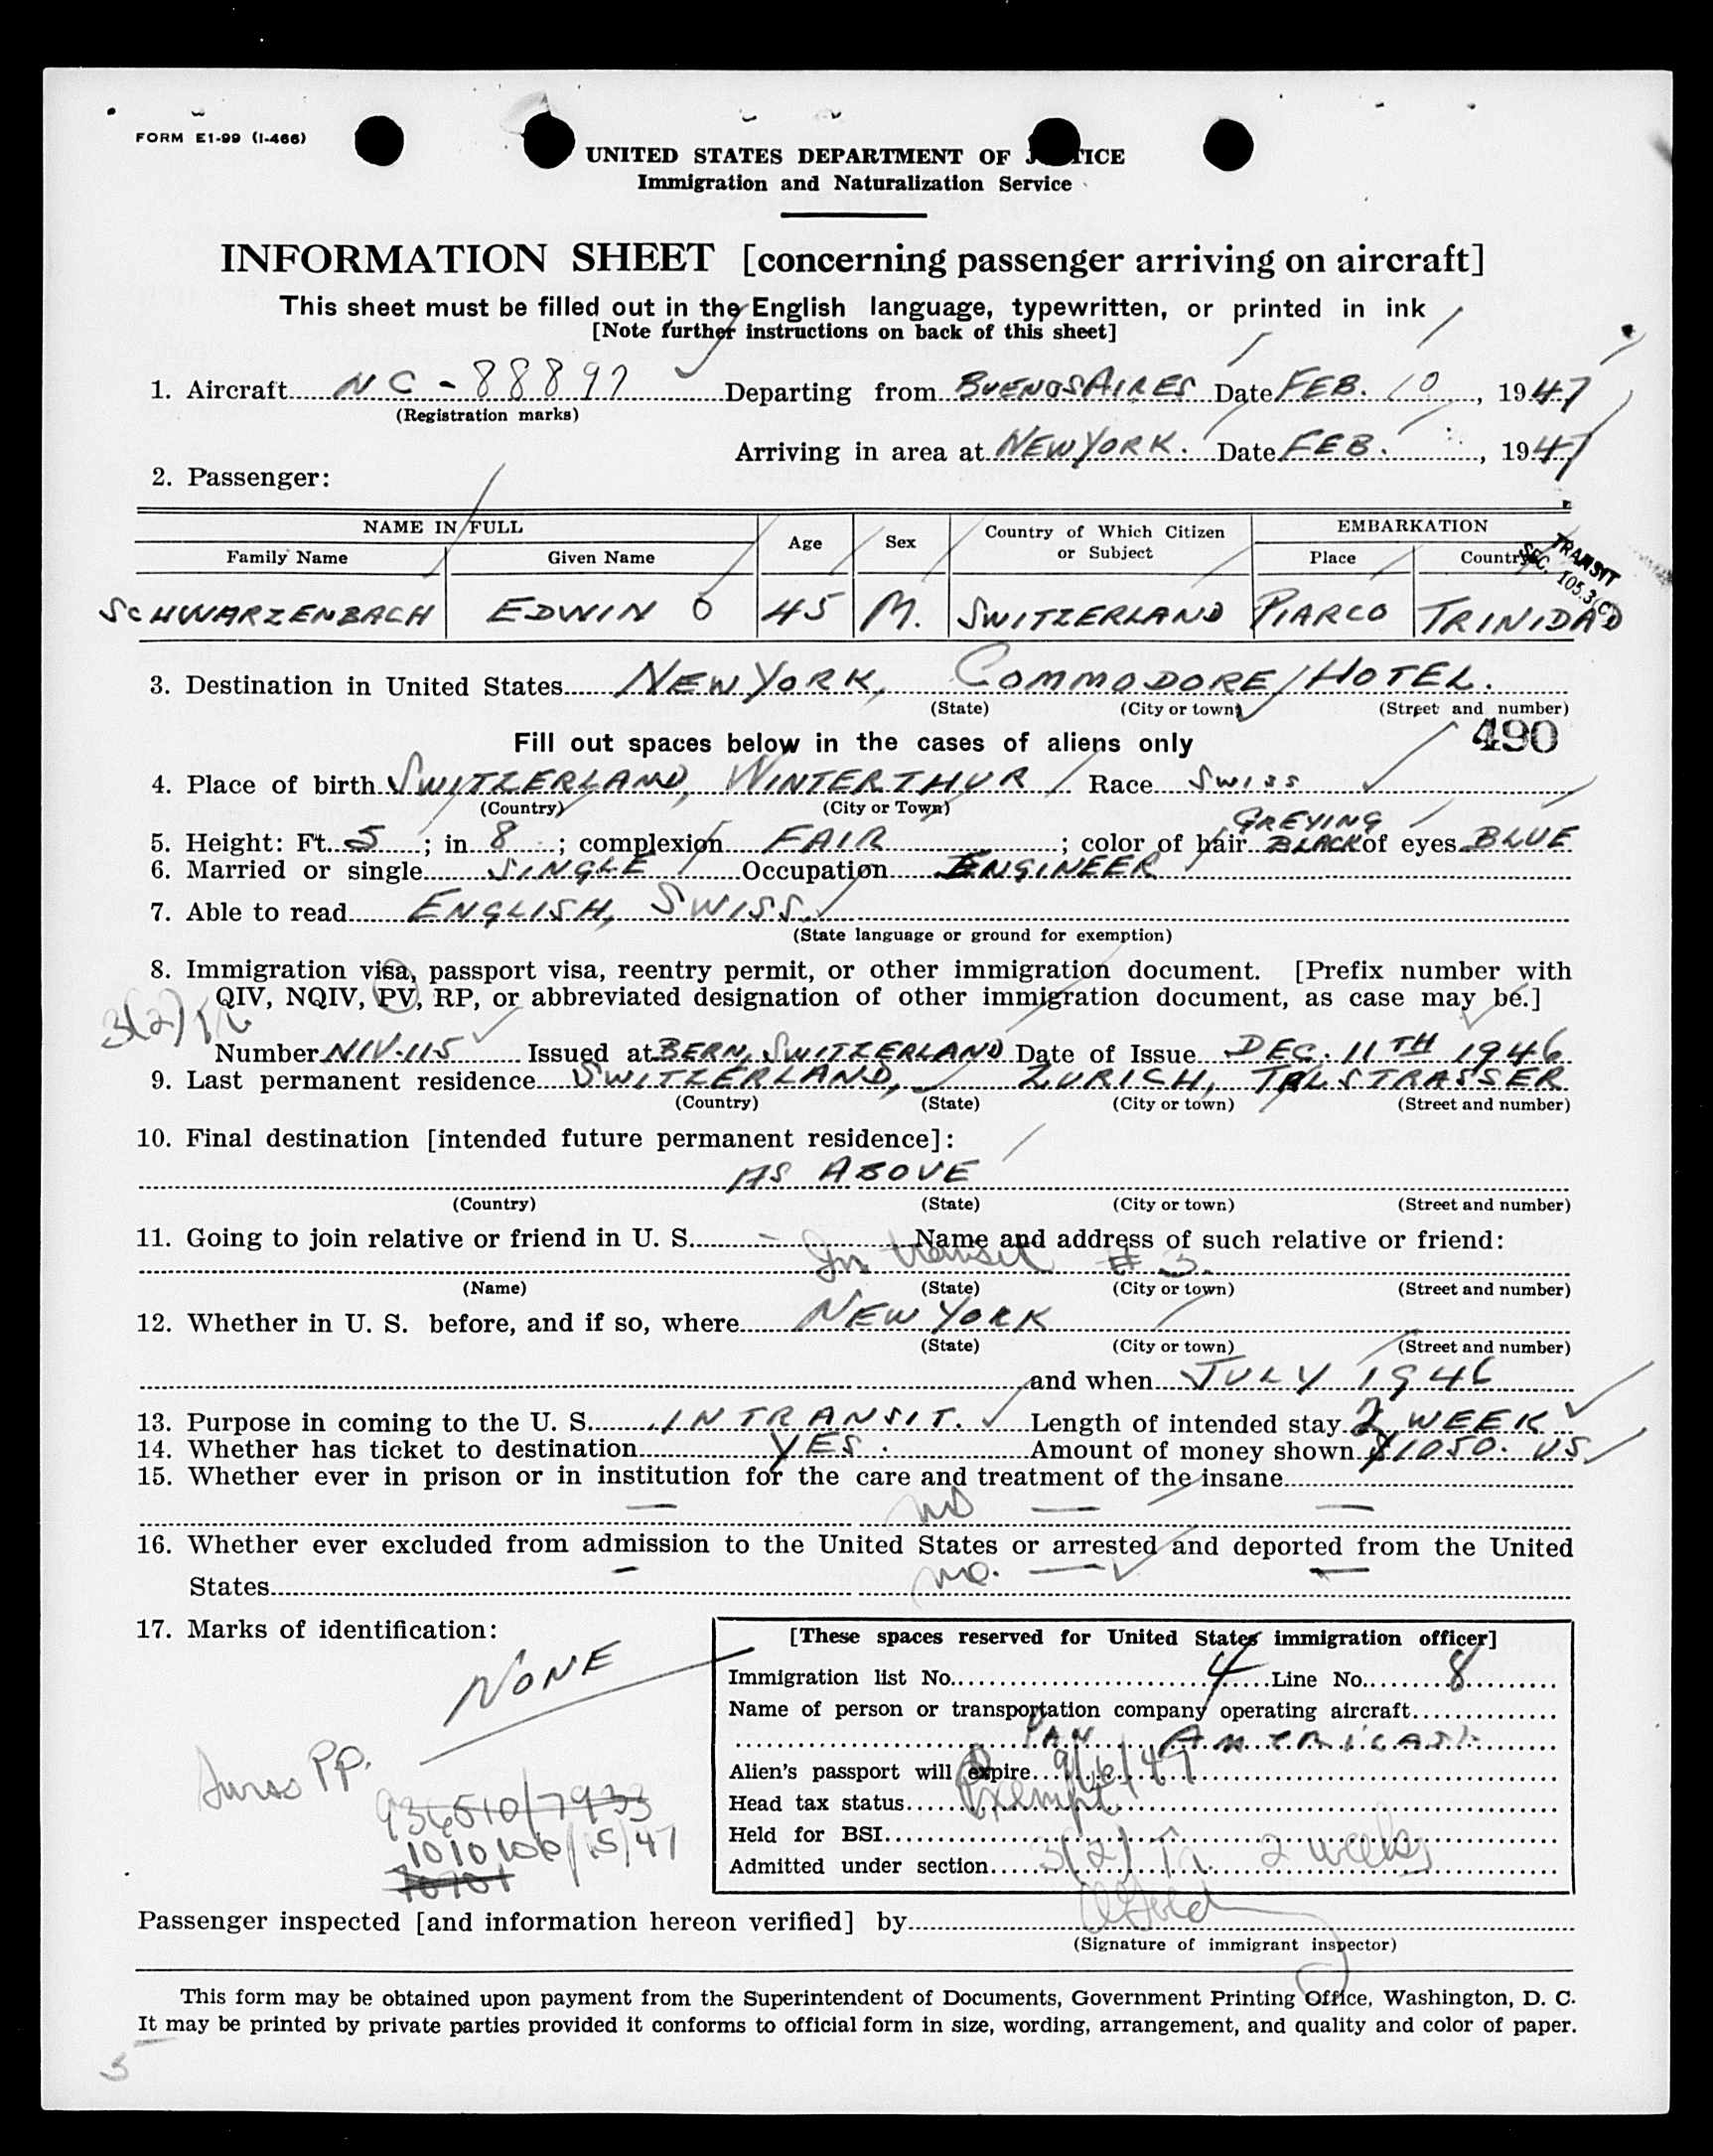 FORM E1-99 (I-466)
UNITED STATES DEPARTMENT OF J TICE
Immigration and Naturalization Service
INFORMATION SHEET [concerning passenger arriving on aircraft]
This sheet must be filled out in the English language, typewritten, or printed in ink
[Note further instructions on back of this sheet]
1. Aircraft NC-88897 Departing from BUENOS AIRES Date FEB. 10, 1947
(Registration marks)
Arriving in area at NEW YORK. Date FEB., 1947
2. Passenger:
NAME IN FULL Age Sex Country of Which Citizen or Subject EMBARKATION
Family Name Given Name Place Country
TRANSIT
SEC. 105.3(C)
SCHWARZENBACH EDWIN O 45 M. SWITZERLAND PIARCO TRINIDAD
3. Destination in United States NEW YORK, COMMODORE HOTEL.
(State) (City or town) (Street and number)
Fill out spaces below in the cases of aliens only 490
4. Place of birth SWITZERLAND, WINTERTHUR Race SWISS
(Country) (City or Town)
5. Height: Ft. 5; in. 8; complexion FAIR; color of hair GREYING BLACK of eyes BLUE
6. Married or single SINGLE Occupation ENGINEER
7. Able to read ENGLISH, SWISS.
(State language or ground for exemption)
8. Immigration visa, passport visa, reentry permit, or other immigration document. [Prefix number with
QIV, NQIV, PV, RP, or abbreviated designation of other immigration document, as case may be.]
3(2)
Number NIV-115 Issued at BERN, SWITZERLAND Date of Issue DEC. 11TH 1946
9. Last permanent residence SWITZERLAND, ZURICH, TALSTRASSER
(Country) (State) (City or town) (Street and number)
10. Final destination [intended future permanent residence]:
AS ABOVE
(Country) (State) (City or town) (Street and number)
11. Going to join relative or friend in U. S. - Name and address of such relative or friend:
In transit # 3.
(Name) (State) (City or town) (Street and number)
12. Whether in U. S. before, and if so, where NEW YORK
(State) (City or town) (Street and number)
and when JULY 1946
13. Purpose in coming to the U. S. IN TRANSIT. Length of intended stay 2 WEEK
14. Whether has ticket to destination YES. Amount of money shown $1050. US
15. Whether ever in prison or in institution for the care and treatment of the insane
— no — —
16. Whether ever excluded from admission to the United States or arrested and deported from the United
States - no. — —
17. Marks of identification:
NONE
[These spaces reserved for United States immigration officer]
Immigration list No. 4 Line No. 8
Name of person or transportation company operating aircraft
PAN AMERICAN
Alien's passport will expire 9/6/47
Head tax status Exempt
Held for BSI
Admitted under section 3(2) 2 weeks
Swiss PP.
936510/7933
1010106/15/47
Passenger inspected [and information hereon verified] by
(Signature of immigrant inspector)
This form may be obtained upon payment from the Superintendent of Documents, Government Printing Office, Washington, D. C.
It may be printed by private parties provided it conforms to official form in size, wording, arrangement, and quality and color of paper.
5